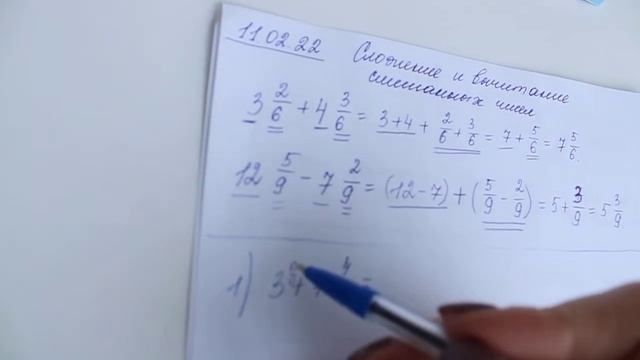 11.02.22
Сложение и вычитание
смешанных чисел
3 2/6 + 4 3/6 = 3+4 + 2/6 + 3/6 = 7 + 5/6 = 7 5/6.
12 5/9 - 7 2/9 = (12-7) + (5/9 - 2/9) = 5 + 3/9 = 5 3/9
1) 3